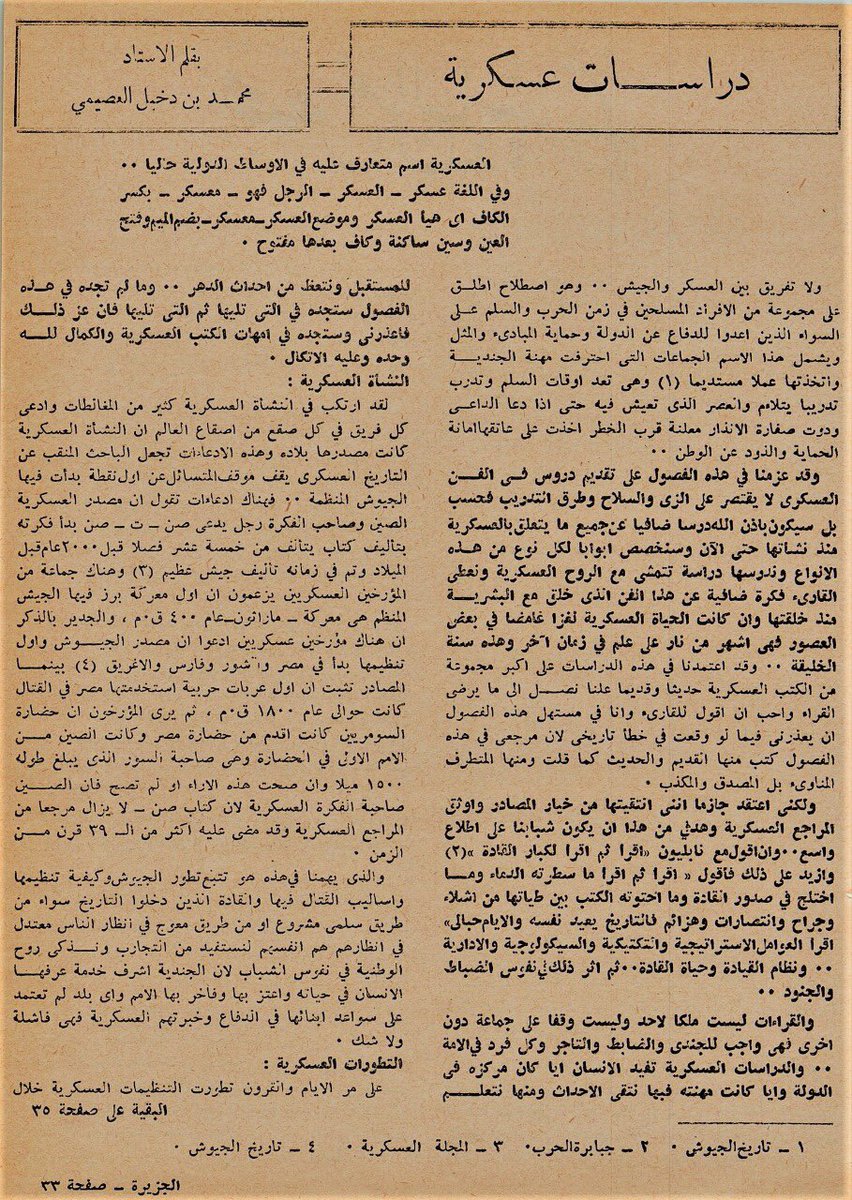 دراســـــات عسكرية
بقلم الاستاد
محمـــد بن دخيل العصيمي
العسكرية اسم متعارف عليه في الاوساط الدولية حاليا ••
وفي اللغة عسكر ــ العسكر ــ الرجل فهو ــ معسكر ــ بكسر
الكاف اى هيأ العسكر وموضع العسكر ــ معسكر ــ بضم الميم وفتح
العين وسين ساكنة وكاف بعدها مفتوح •
ولا تفريق بين العسكر والجيش •• وهو اصطلاح اطلــق
على مجموعة من الافراد المسلحين في زمن الحرب والسلم علـى
السواء الذين اعدوا للدفاع عن الدولة وحماية المبادىء والمثل
ويشمل هذا الاسم الجماعات التى احترفت مهنة الجنديــة
واتخذتها عملا مستديما (١) وهى تعد اوقات السلم وتدرب
تدريبا يتلاءم والعصر الذى تعيش فيه حتى اذا دعا الداعـى
ودوت صفارة الانذار معلنة قرب الخطر اخذت على عاتقها امانة
الحماية والذود عن الوطن ••
وقد عزمنا في هذه الفصول على تقديم دروس فـى الفـن
العسكرى لا يقتصر على الزى والسلاح وطرق التدريب فحسب
بل سيكون باذن الله درسا ضافيا عن جميع ما يتعلق بالعسكرية
منذ نشاتها حتى الآن وسنخصص ابوابا لكل نوع من هــذه
الانواع وندرسها دراسة تتمشى مع الروح العسكرية ونعطى
القارىء فكرة ضافية عن هذا الفن الذى خلق مع البشريــة
منذ خلقتها وان كانت الحياة العسكرية لغزا غامضا في بعض
العصور فهى اشهر من نار على علم في زمان آخر وهذه سنة
الخليقة •• وقد اعتمدنا في هذه الدراسات على اكبر مجموعة
من الكتب العسكرية حديثا وقديما علنا نصــل الى ما يرضى
القراء واحب ان اقول للقارىء وانا في مستهل هذه الفصول
ان يعذرنى فيما لو وقعت في خطأ تاريخى لان مرجعى في هذه
الفصول كتب منها القديم والحديث كما قلت ومنها المتطرف
المناوىء بل المصدق والمكذب •
ولكنى اعتقد جازما اننى انتقيتها من خيار المصادر واوثق
المراجع العسكرية وهدفي من هذا ان يكون شبابنا على اطلاع
واسع •• وان اقول مع نابليون «اقرا ثم اقرا لكبار القادة »(٢)
وازيد على ذلك فأقول « اقرا ثم اقرا ما سطرته الدماء ومــا
اختلج في صدور القادة وما احتوته الكتب بين طياتها من اشلاء
وجراح وانتصارات وهزائم فالتاريخ يعيد نفسه والايام حبالى»
اقرا العوامل الاستراتيجية والتكتيكية والسيكولوجية والادارية
•• ونظام القيادة وحياة القادة •• ثم اثر ذلك في نفوس الضباط
والجنود ••
والقراءات ليست ملكا لاحد وليست وقفا على جماعة دون
اخرى فهى واجب للجندى والضابط والتاجر وكل فرد في الامة
•• والدراسات العسكرية تفيد الانسان ايا كان مركزه فى
الدولة وايا كانت مهنته فبها نتقى الاحداث ومنها نتعلــم
للمستقبل ونتعظ من احداث الدهر •• وما لم تجده في هــذه
الفصول ستجده في التى تليها ثم التى تليها فان عز ذلــك
فاعذرنى وستجده في امهات الكتب العسكرية والكمال للــه
وحده وعليه الاتكال •
النشأة العسكرية :
لقد ارتكب في النشأة العسكرية كثير من المغالطات وادعى
كل فريق في كل صقع من اصقاع العالم ان النشأة العسكرية
كانت مصدرها بلاده وهذه الادعاءات تجعل الباحث المنقب عن
التاريخ العسكرى يقف موقف المتسائل عن اول نقطة بدأت فيها
الجيوش المنظمة •• فهناك ادعاءات تقول ان مصدر العسكرية
الصين وصاحب الفكرة رجل يدعى صن ــ ت ــ صن بدأ فكرته
بتأليف كتاب يتألف من خمسة عشر فصلا قبل ٢٠٠٠ عام قبل
الميلاد وتم في زمانه تأليف جيش عظيم (٣) وهناك جماعة من
المؤرخين العسكريين يزعمون ان اول معركة برز فيها الجيش
المنظم هى معركة ــ ماراثون ــ عام ٤٠٠ ق•م ، والجدير بالذكر
ان هناك مؤرخين عسكريين ادعوا ان مصدر الجيــوش واول
تنظيمها بدأ في مصر واشور وفارس والاغريق (٤) بينمــا
المصادر تثبت ان اول عربات حربية استخدمتها مصر في القتال
كانت حوالى عام ١٨٠٠ ق•م ، ثم يرى المؤرخون ان حضارة
السومريين كانت اقدم من حضارة مصر وكانت الصين مــن
الامم الاولى في الحضارة وهى صاحبة السور الذى يبلغ طوله
١٥٠٠ ميلا وان صحت هذه الاراء او لم تصح فان الصــين
صاحبة الفكرة العسكرية لان كتاب صن ــ لا يزال مرجعا من
المراجع العسكرية وقد مضى عليه اكثر من الـ ٣٩ قرن مــن
الزمن •
والذى يهمنا في هذه هو تتبع تطور الجيوش وكيفية تنظيمها
واساليب القتال فيها والقادة الذين دخلوا التاريخ سواء من
طريق سلمى مشروع او من طريق معوج في انظار الناس معتدل
في انظارهم هم انفسهم لنستفيد من التجارب ونــذكى روح
الوطنية في نفوس الشباب لان الجندية اشرف خدمة عرفهـا
الانسان في حياته واعتز بها وفاخر بها الامم واى بلد لم تعتمد
على سواعد ابنائها في الدفاع وخبرتهم العسكرية فهى فاشلة
ولا شك •
التطورات العسكرية :
على مر الايام والقرون تطورت التنظيمات العسكرية خلال
البقية على صفحة ٣٥
١ ــ تاريخ الجيوش • ٢ ــ جبابرة الحرب • ٣ ــ المجلة العسكرية • ٤ ــ تاريخ الجيوش •
الجزيرة ــ صفحة ٣٣